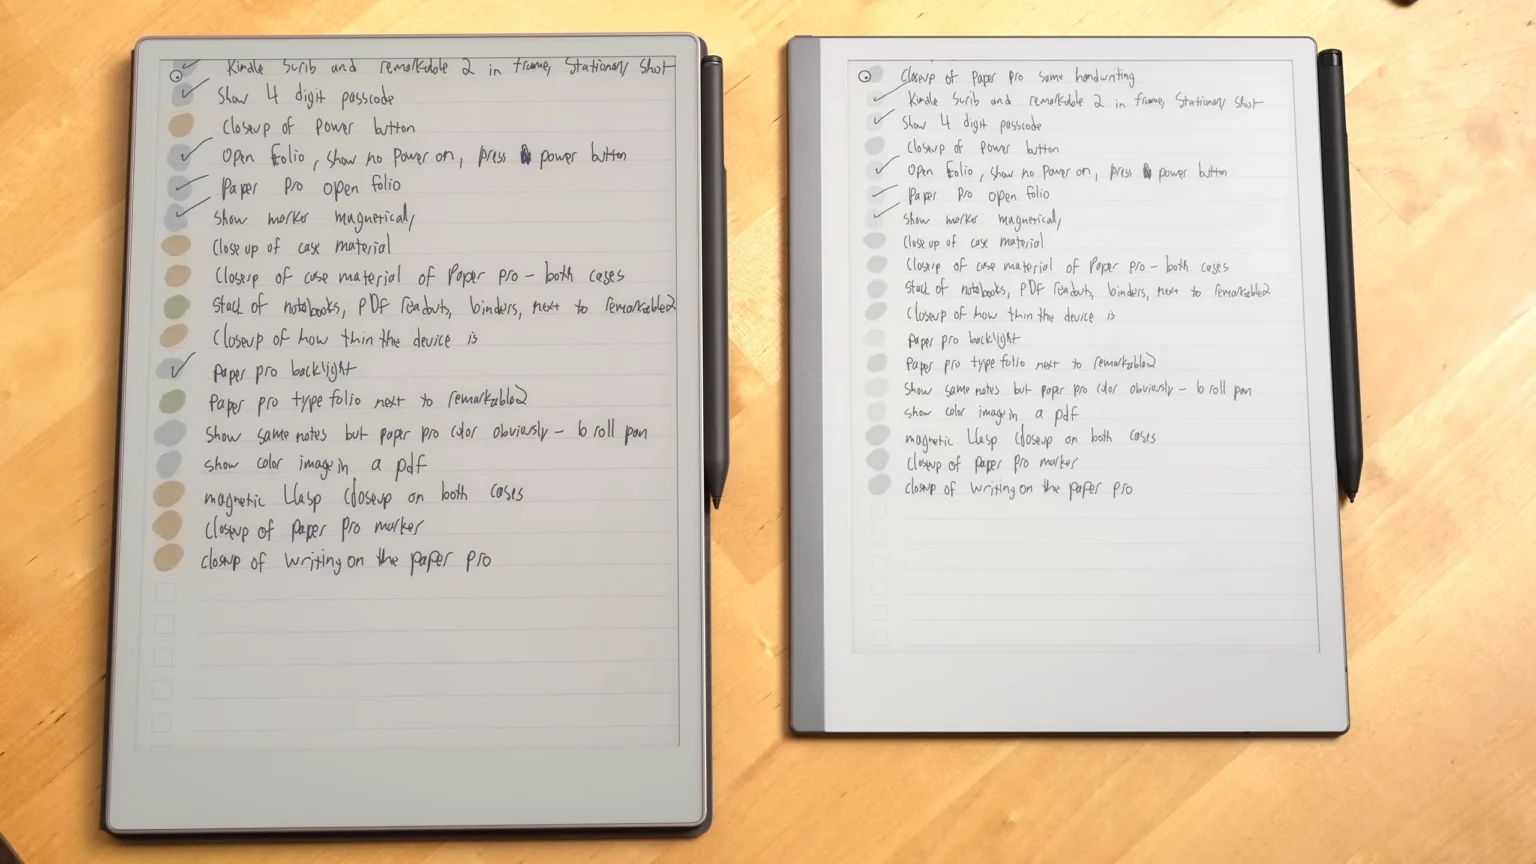 Kindle Scrib and remarkable 2 in frame, Stationary Shot
Show 4 digit passcode
Closeup of Power button
Open Folio, show no Power on, press power button
Paper Pro open folio
Show marker magnetically
Close up of case material
Closeup of case material of Paper pro - both cases
Stack of notebooks, PDF readouts, binders, next to remarkable2
Closeup of how thin the device is
Paper pro backlight
Paper pro type folio next to remarkable2
Show same notes but paper pro color obviously - b roll pan
show color image in a pdf
magnetic clasp closeup on both cases
Closeup of paper pro marker
closup of writing on the paper pro
Closeup of Paper Pro same handwriting
Kindle Scrib and remarkable 2 in frame, Stationary Shot
Show 4 digit passcode
Closeup of Power button
Open Folio, show no Power on, press power button
Paper Pro open folio
Show marker magnetically
Close up of case material
Closeup of case material of Paper pro - both cases
Stack of notebooks, PDF readouts, binders, next to remarkable2
Closeup of how thin the device is
Paper pro backlight
Paper pro type folio next to remarkable2
Show same notes but paper pro color obviously - b roll pan
show color image in a pdf
magnetic clasp closeup on both cases
Closeup of paper pro marker
closup of writing on the paper pro